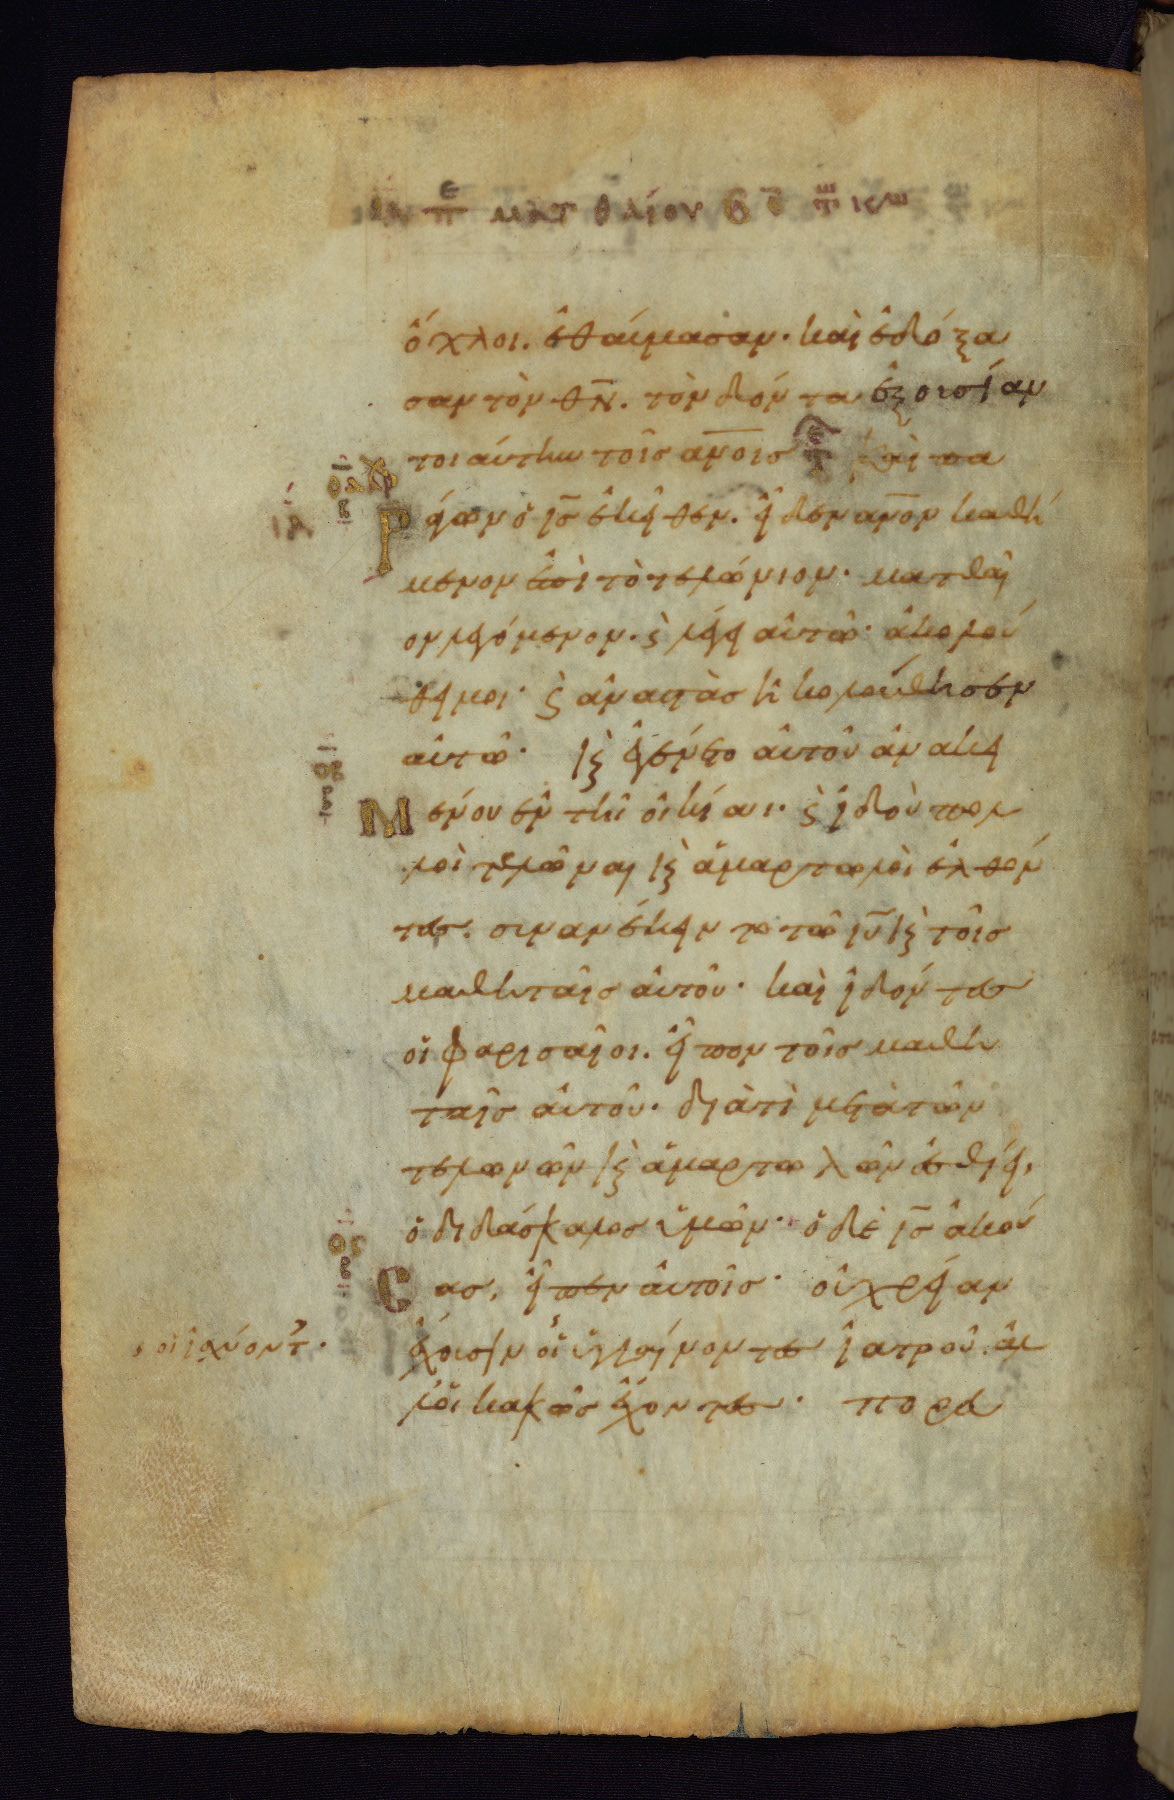 ματθαίου
ὄχλοι. ἐθαύμασαν· καὶ ἐδόξα
σαν τὸν θ̅ν̅. τὸν δόντα ἐξουσίαν
τοιαύτην τοῖς α̅ν̅οις καὶ πα
ράγων ὁ ι̅ς̅ ἐκεῖθεν. εἶδεν α̅ν̅ον καθή
μενον ἐπὶ τὸ τελώνιον· ματθαῖ
ον λεγόμενον. ϗ̀ λέγει αὐτῶ· ἀκολού
θει μοι· ϗ̀ ἀναστὰς ἠκολούθησεν
αὐτῶ· ϗ̀ ἐγένετο αὐτοῦ ἀνακει
Μένου ἐν τῆ οἰκίαι· ϗ̀ ἰδοὺ πολ
λοὶ τελῶναι ϗ̀ ἁμαρτωλοὶ ἐλθόν
τες. συνανέκειντο τῶ ι̅υ̅ ϗ̀ τοῖς
μαθηταῖς αὐτοῦ· καὶ ἰδόντες
οἱ φαρισαῖοι. εἶπον τοῖς μαθη
ταῖς αὐτοῦ· διατὶ μετὰ τῶν
τελωνῶν ϗ̀ ἁμαρτωλῶν ἐσθίει,
ὁ διδάσκαλος ὑμῶν· ὁ δὲ ι̅ς̅ ἀκού
Cας, εἶπεν αὐτοῖς· οὐ χρείαν
οἱ ἰσχύοντ·
ἔχουσιν οἱ ὑγιαίνοντες ἰατροῦ. ἀλ
λ' οἱ κακῶς ἔχοντες· πορευ